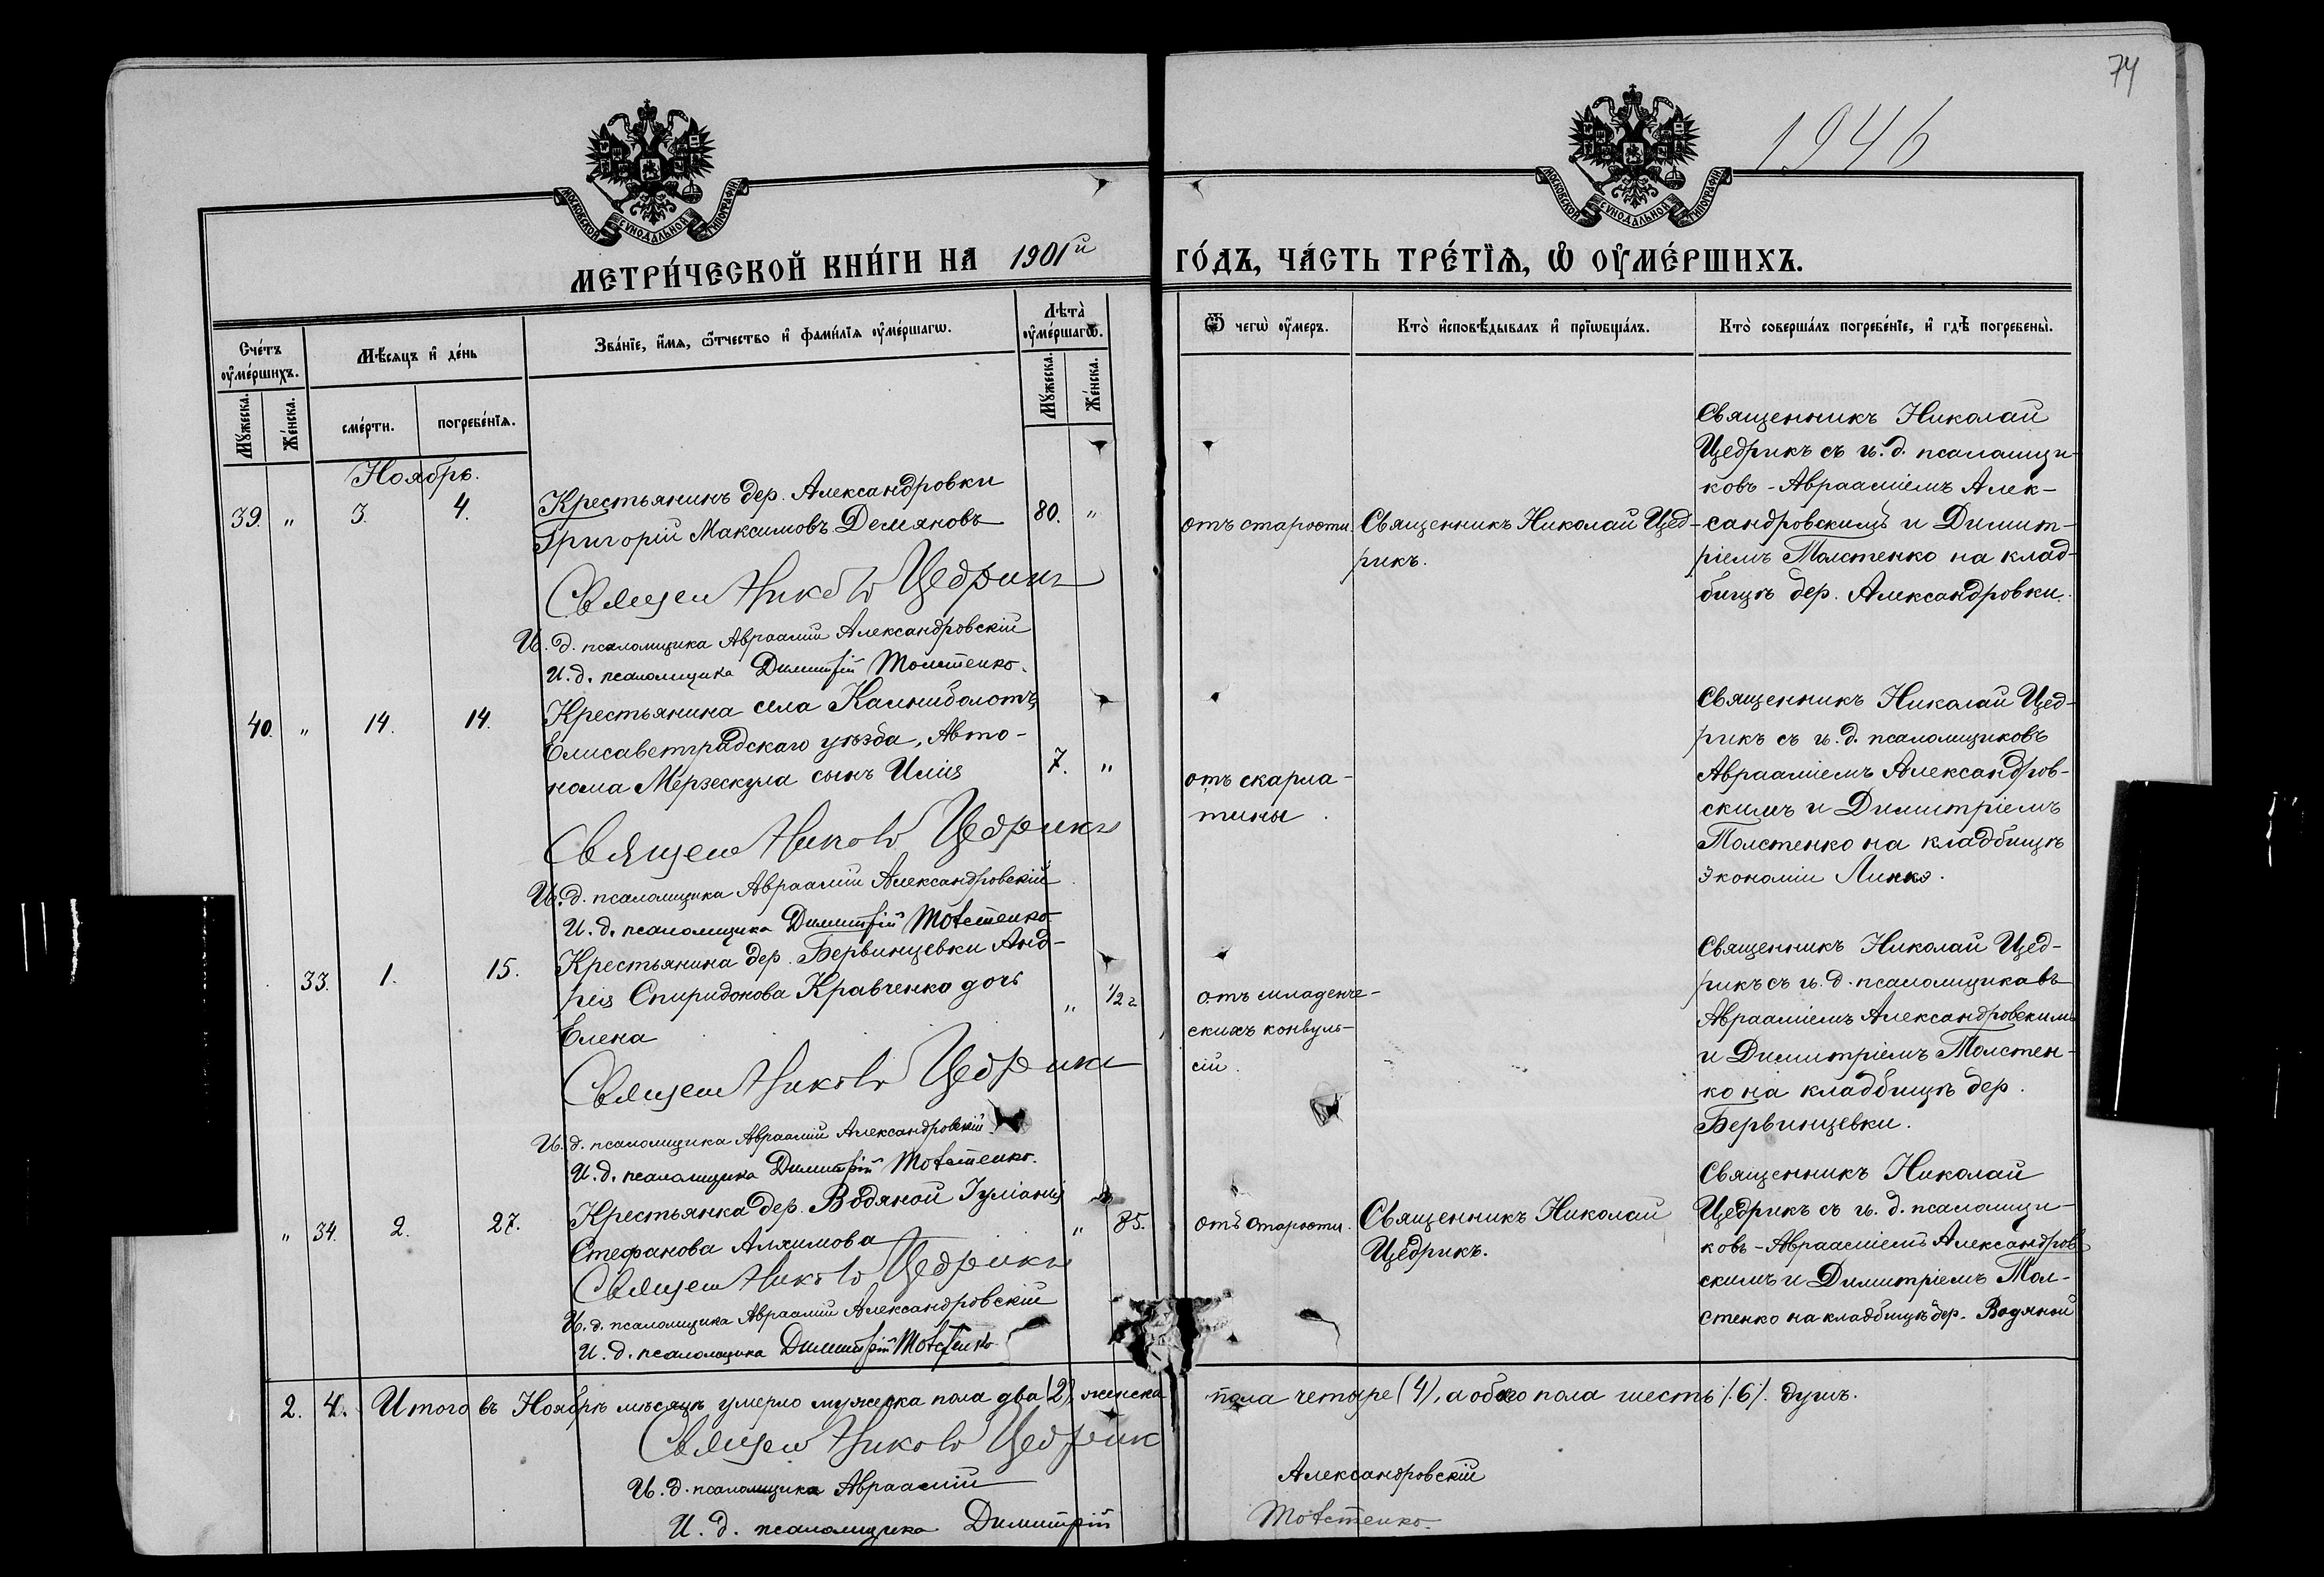 74
1946
МОСКОВСКОЙ СѴНОДАЛЬНОЙ ТИПОГРАФІИ
МОСКОВСКОЙ СѴНОДАЛЬНОЙ ТИПОГРАФІИ
МЕТРИ́ЧЕСКОЙ КНИ́ГИ НА 1901й ГО́ДЪ, ЧА́СТЬ ТРЕ́ТЇѦ, Ѡ҆ ОУ҆МЕ́РШИХЪ.
Сче́тъ оу҆ме́ршихъ.
Мꙋ́жеска.
Же́нска.
Мѣ́сяцъ и҆ де́нь
сме́рти.
погребе́нїѧ.
Зва́нїе, и҆́мѧ, ѻ҆́тчество и҆ фами́лїѧ оу҆ме́ршагѡ.
Лѣ́та̀ оу҆ме́ршагѡ.
Мꙋ́жеска.
Же́нска.
Ѿ чегѡ̀ оу҆́меръ.
Кто̀ и҆сповѣ́дывалъ и҆ прїѡбща́лъ.
Кто̀ соверша́лъ погребе́нїе, и҆ гдѣ̀ погребены̀.
Ноябрь.
39. " 3. 4. Крестьянинъ дер. Александровки
Григорій Максимовъ Демяновъ 80. "
Священ Николо Щедрикъ
И. д. псаломщика Авраамій Александровскій
И. д. псаломщика Димитрій Толстенко.
отъ старости.
Священникъ Николай Щед-
рикъ.
Священникъ Николай
Щедрикъ съ и. д. псаломщи-
ковъ - Авраамiемъ Алек-
сандровскимъ и Димит-
ріемъ Толстенко на клад-
бищѣ дер. Александровки.
40. " 14. 14. Крестьянина села Камниболотъ,
Елисаветградскаго уѣзда, Авто-
нома Мерзескула сынъ Илія 7. "
Священ Николо Щедрикъ
И. д. псаломщика Авраамій Александровскій
И. д. псаломщика Димитрій Толстенко
отъ скарла-
тины.
Священникъ Николай Щед-
рикъ съ и. д. псаломщиковъ
Авраамiемъ Александров-
скимъ и Димитріемъ
Толстенко на кладбищѣ
экономіи Линкэ.
33. 1. 15. Крестьянина дер. Бервинцевки Анд-
рея Спиридонова Кравченко дочь
Елена " 1/2 г
Священ Николо Щедрикъ
И. д. псаломщика Авраамій Александровскій
И. д. псаломщика Димитрій Толстенко.
отъ младенче-
скихъ конвуль-
сій.
Священникъ Николай Щед-
рикъ съ и. д. псаломщиковъ
Авраамiемъ Александровскимъ
и Димитріемъ Толстен-
ко на кладбищѣ дер.
Бервинцевки.
" 34. 2. 27. Крестьянка дер. Водяной Іуліанія
Стефанова Алхимова " 85.
Священ Николо Щедрикъ
И. д. псаломщика Авраамій Александровскій
И. д. псаломщика Димитрій Толстенко
отъ старости.
Священникъ Николай
Щедрикъ.
Священникъ Николай
Щедрикъ съ и. д. псаломщи-
ковъ - Авраамiемъ Александров
скимъ и Димитріемъ Тол-
стенко на кладбищѣ дер. Водяной
2. 4. Итого въ Ноябрѣ мѣсяцѣ умерло мужеска пола два (2), женска пола четыре (4), а обоего пола шесть (6) душъ.
Священ Николо Щедрик
И. д. псаломщика Авраамій Александровскій
И. д. псаломщика Димитрій Толстенко.